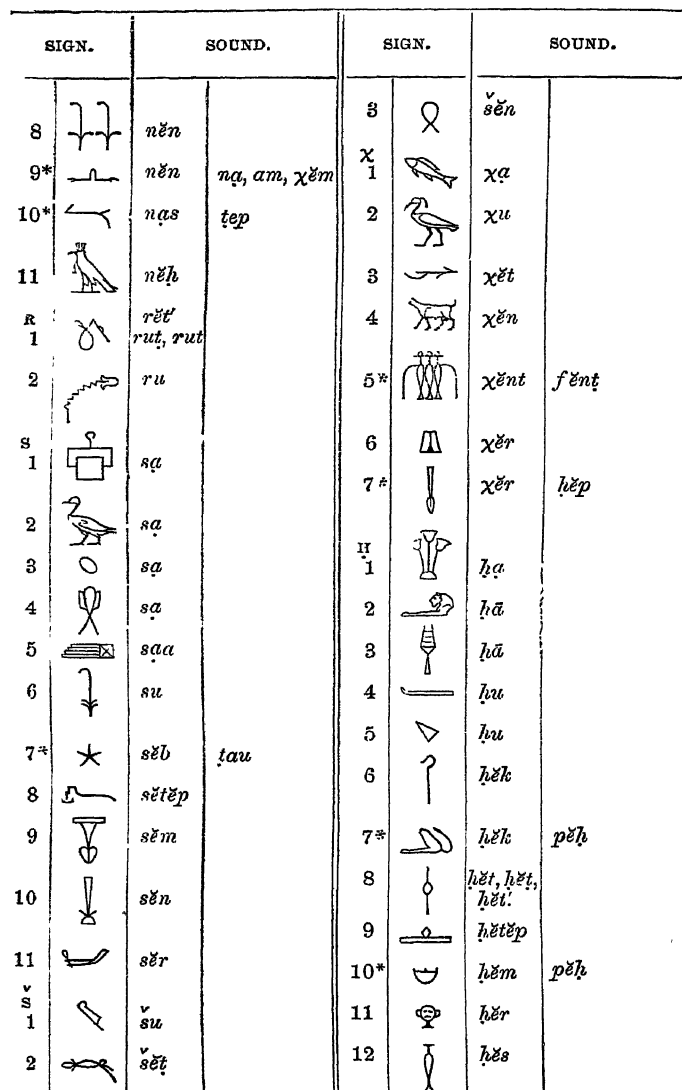 SIGN. SOUND.
8 nĕn
9* nĕn nạ, am, χĕm
10* nạs ṭep
11 nĕḥ
R
1 rĕt' ruṭ, rut
2 ru
S
1 sạ
2 sạ
3 sạ
4 sạ
5 sạa
6 su
7* sĕb ṭau
8 sĕtĕp
9 sĕm
10 sĕn
11 sĕr
Š
1 šu
2 šĕṭ
SIGN. SOUND.
3 šĕn
χ
1 χạ
2 χu
3 χĕt
4 χĕn
5* χĕnt fĕnṭ
6 χĕr
7* χĕr ḥĕp
Ḥ
1 ḥạ
2 ḥā
3 ḥā
4 ḥu
5 ḥu
6 ḥĕk
7* ḥĕk pĕḥ
8 ḥĕt, ḥĕṭ,
ḥĕt'.
9 ḥĕtĕp
10* ḥĕm pĕḥ
11 ḥĕr
12 ḥĕs